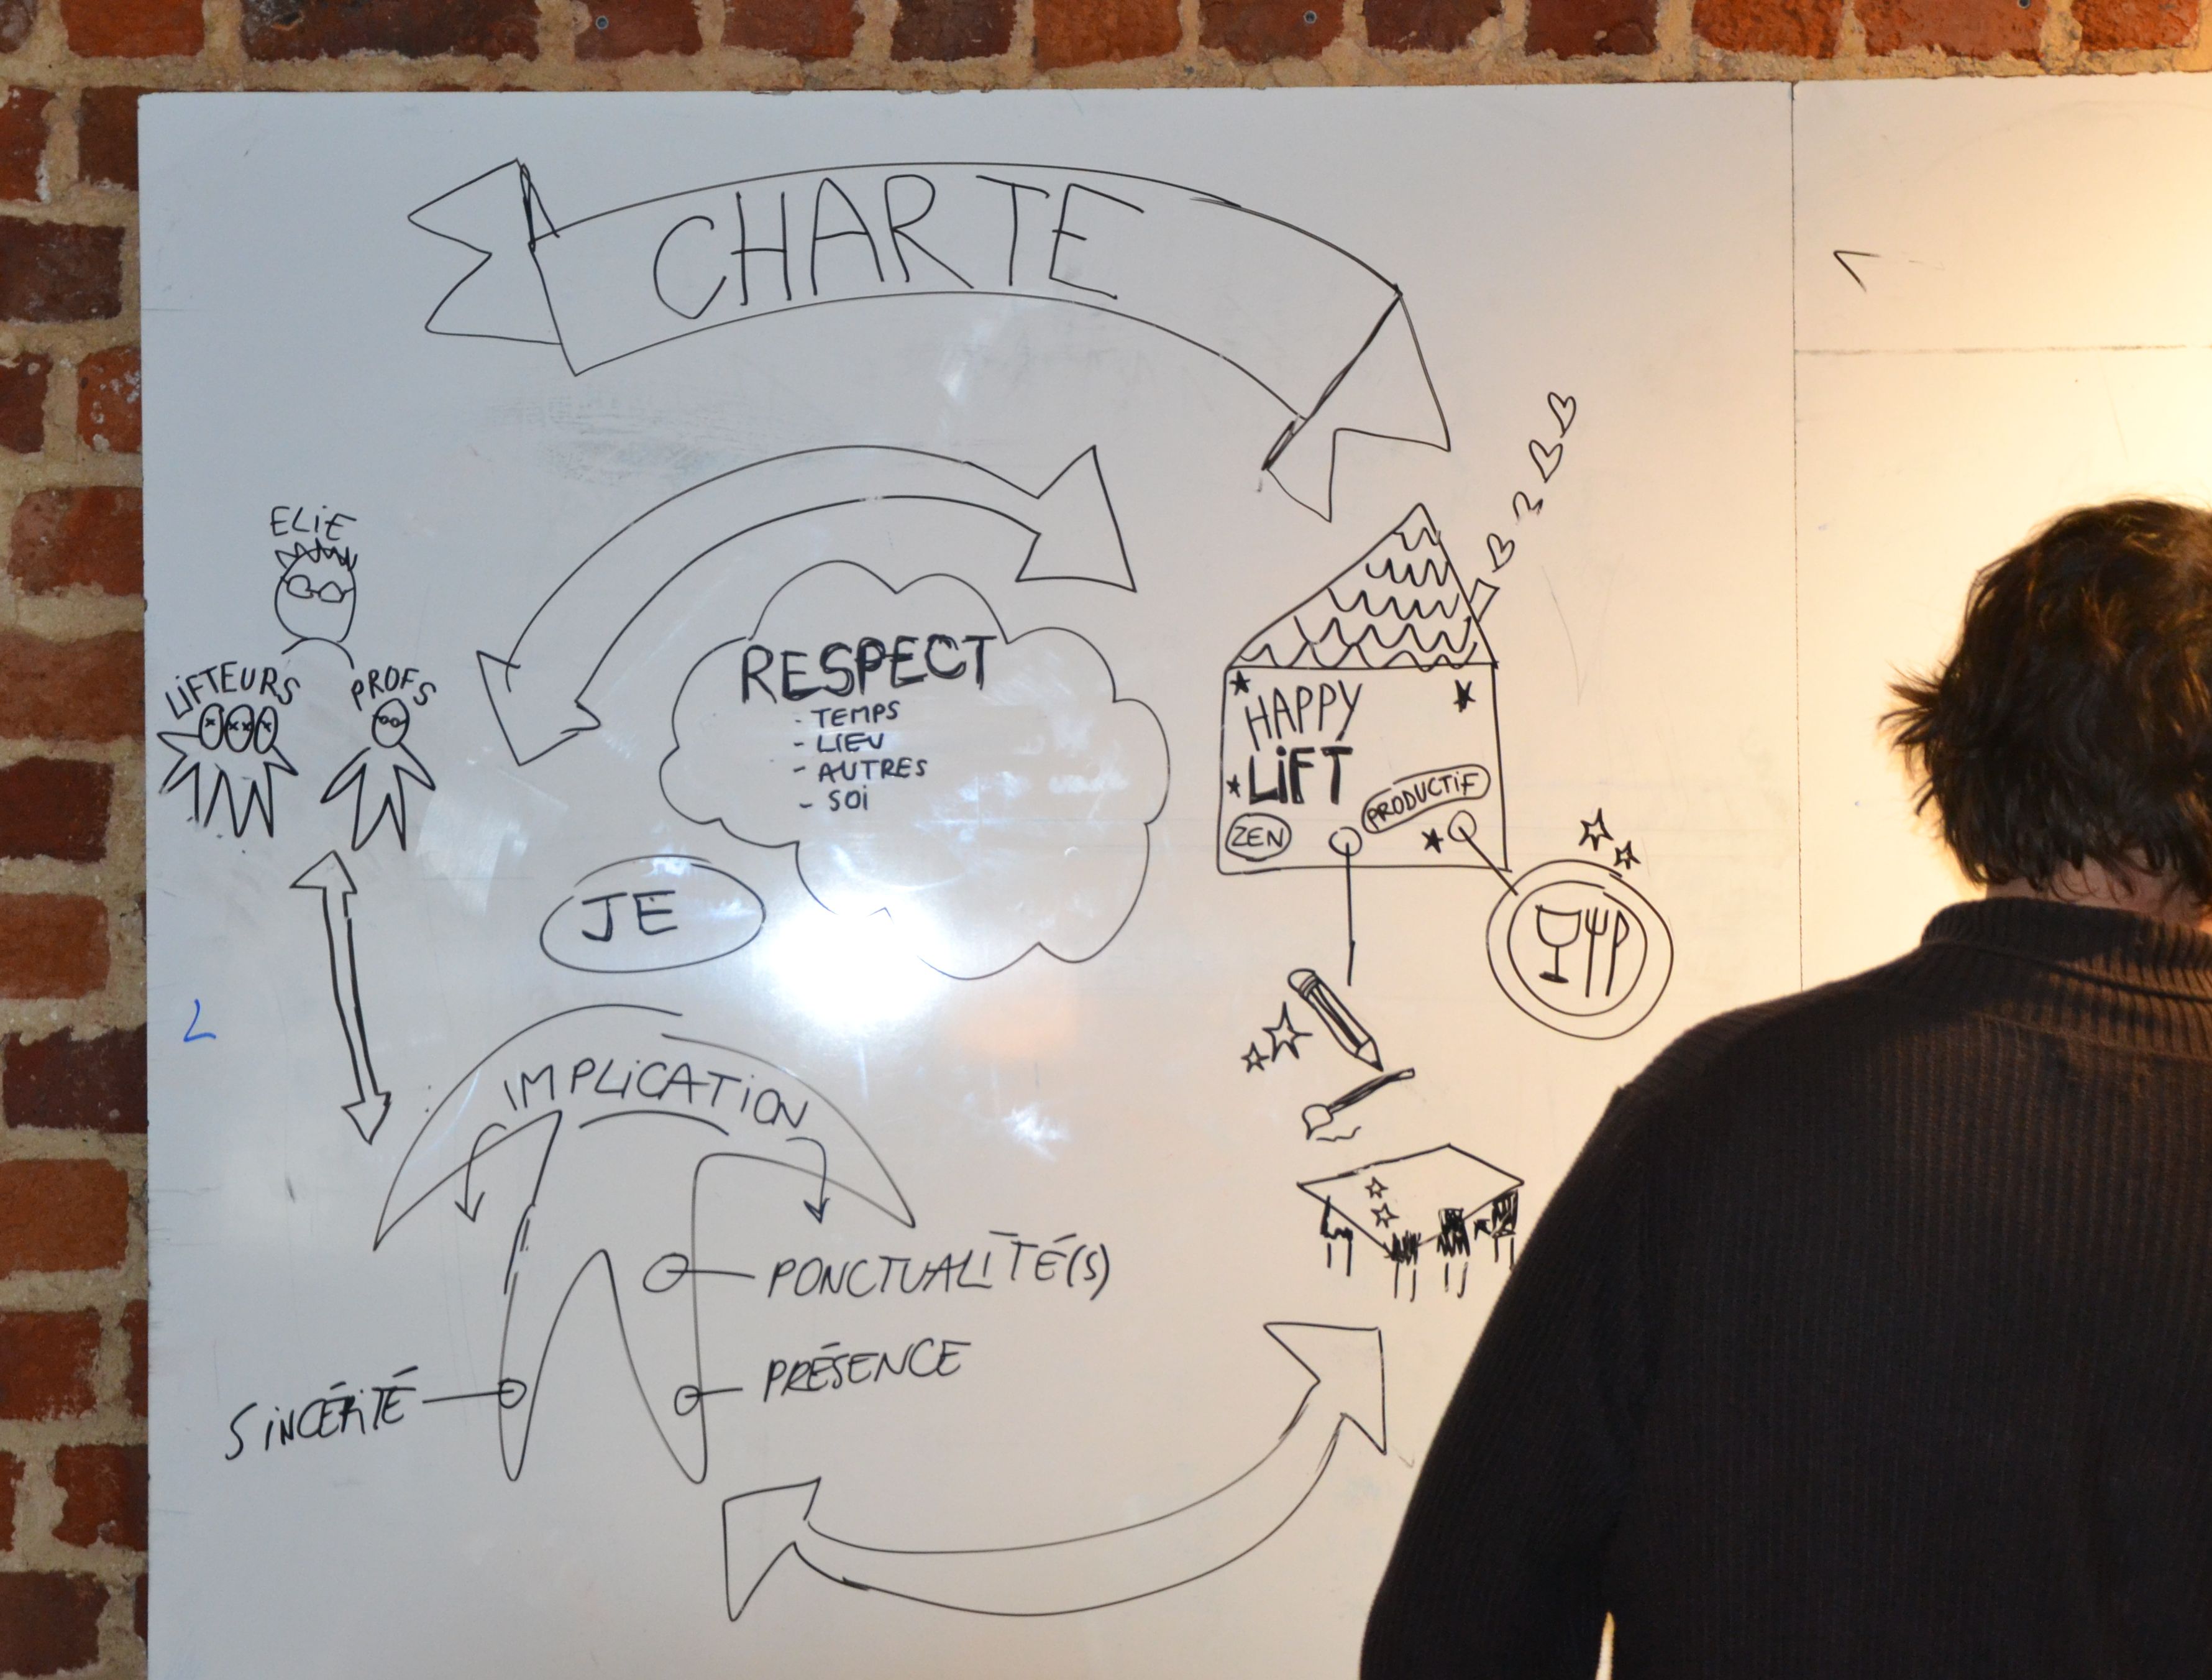 CHARTE
ELiE
LiFTEURS
PROFS
RESPECT
- TEMPS
- LIEU
- AUTRES
- SOi
HAPPY
LiFT
PRODUCTiF
ZEN
JE
IMPLiCATiON
PONCTUALITÉ(S)
PRÉSENCE
SiNCÉRiTÉ